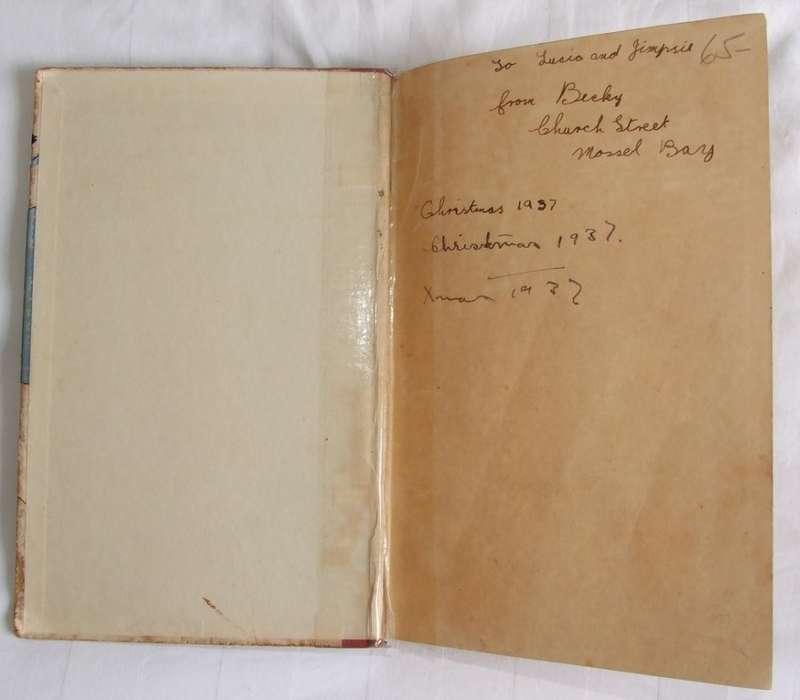 To Lucio and Jimpsie 65-
from Becky
Church Street
Mossel Bay
Christmas 1937
Christmas 1937.
Xmas 1937